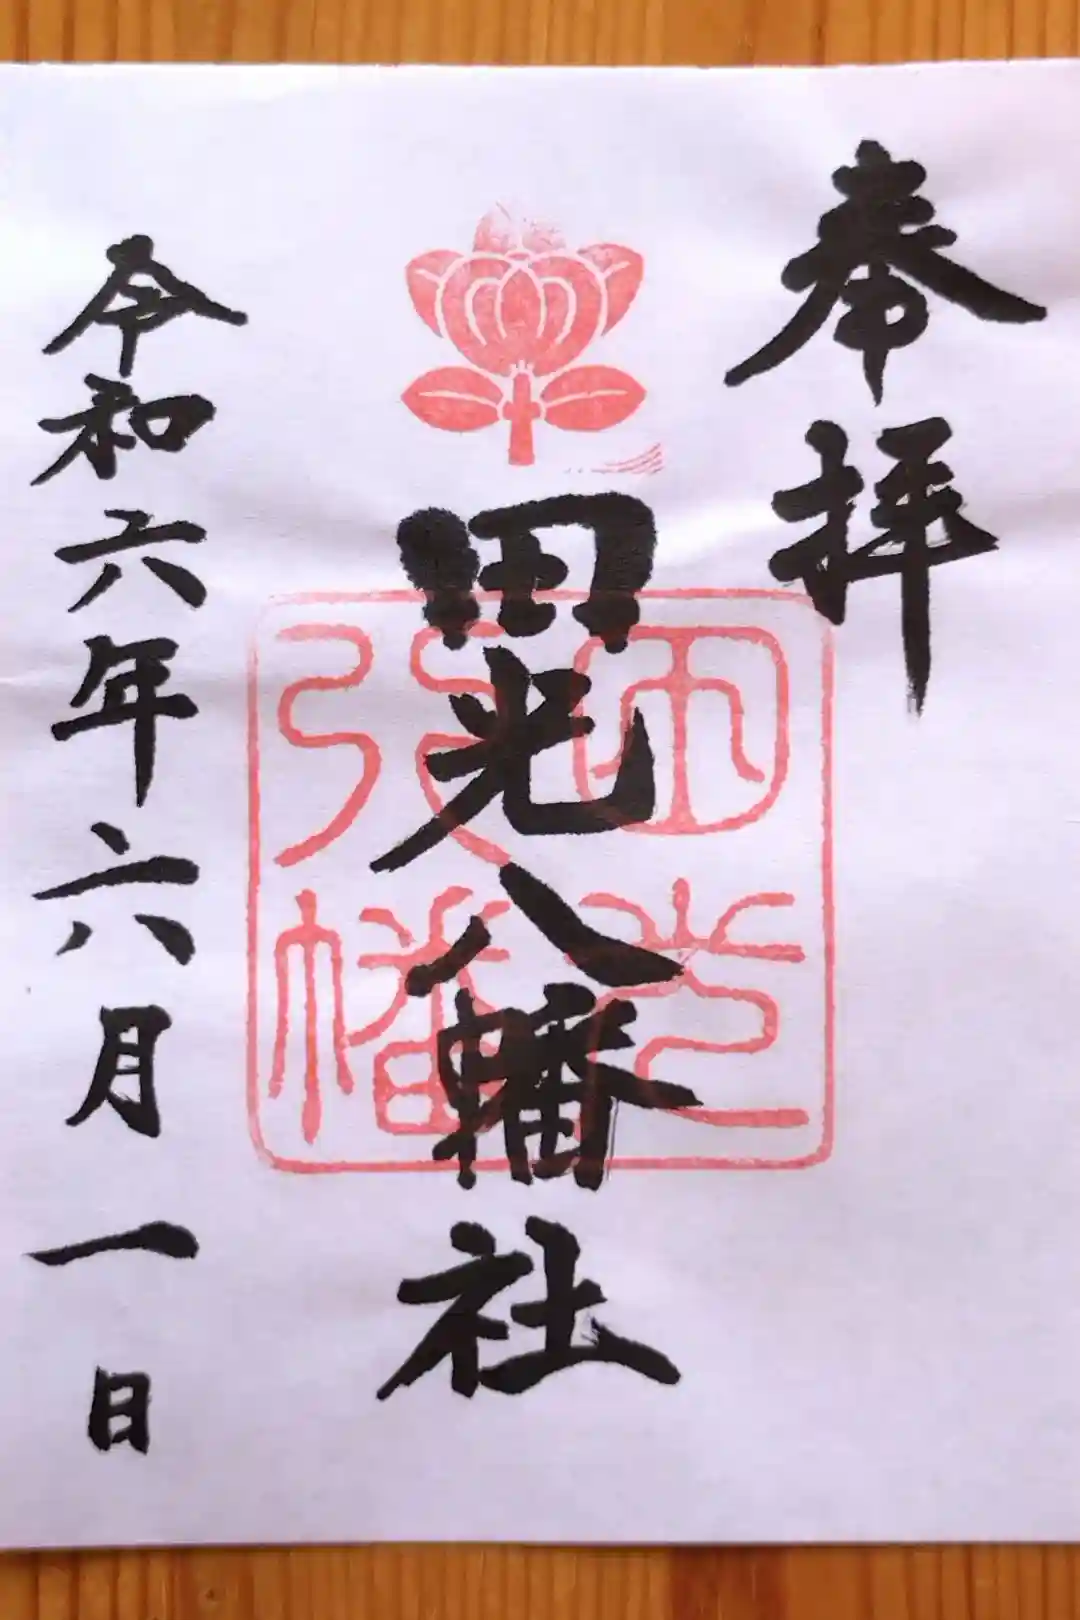 奉拝
田光八幡社
田光八幡
令和六年六月一日